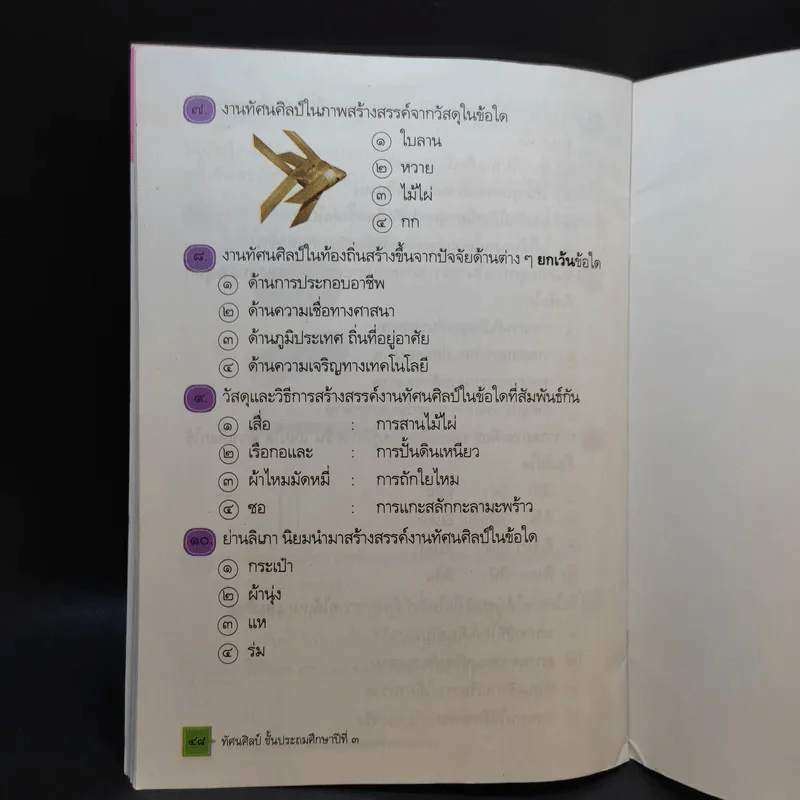 ๗. งานทัศนศิลป์ในภาพสร้างสรรค์จากวัสดุในข้อใด
๑ ใบลาน
๒ หวาย
๓ ไม้ไผ่
๔ กก
๘. งานทัศนศิลป์ในท้องถิ่นสร้างขึ้นจากปัจจัยด้านต่าง ๆ ยกเว้นข้อใด
๑ ด้านการประกอบอาชีพ
๒ ด้านความเชื่อทางศาสนา
๓ ด้านภูมิประเทศ ถิ่นที่อยู่อาศัย
๔ ด้านความเจริญทางเทคโนโลยี
๙. วัสดุและวิธีการสร้างสรรค์งานทัศนศิลป์ในข้อใดที่สัมพันธ์กัน
๑ เสื่อ : การสานไม้ไผ่
๒ เรือกอและ : การปั้นดินเหนียว
๓ ผ้าไหมมัดหมี่ : การถักใยไหม
๔ ซอ : การแกะสลักกะลามะพร้าว
๑๐. ย่านลิเภา นิยมนำมาสร้างสรรค์งานทัศนศิลป์ในข้อใด
๑ กระเป๋า
๒ ผ้านุ่ง
๓ แห
๔ ร่ม
๔๘ ทัศนศิลป์ ชั้นประถมศึกษาปีที่ ๓